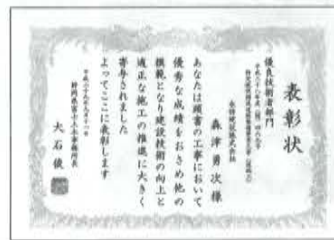 表彰状
優良技術者部門
森津勇次様
あなたは頭書の工事において
優秀な成績をおさめ他の
模範となり建設技術の向上と
適正な施工の推進に大きく
寄与されました
よってここに表彰します
静岡県富士土木事務所長
大石俊